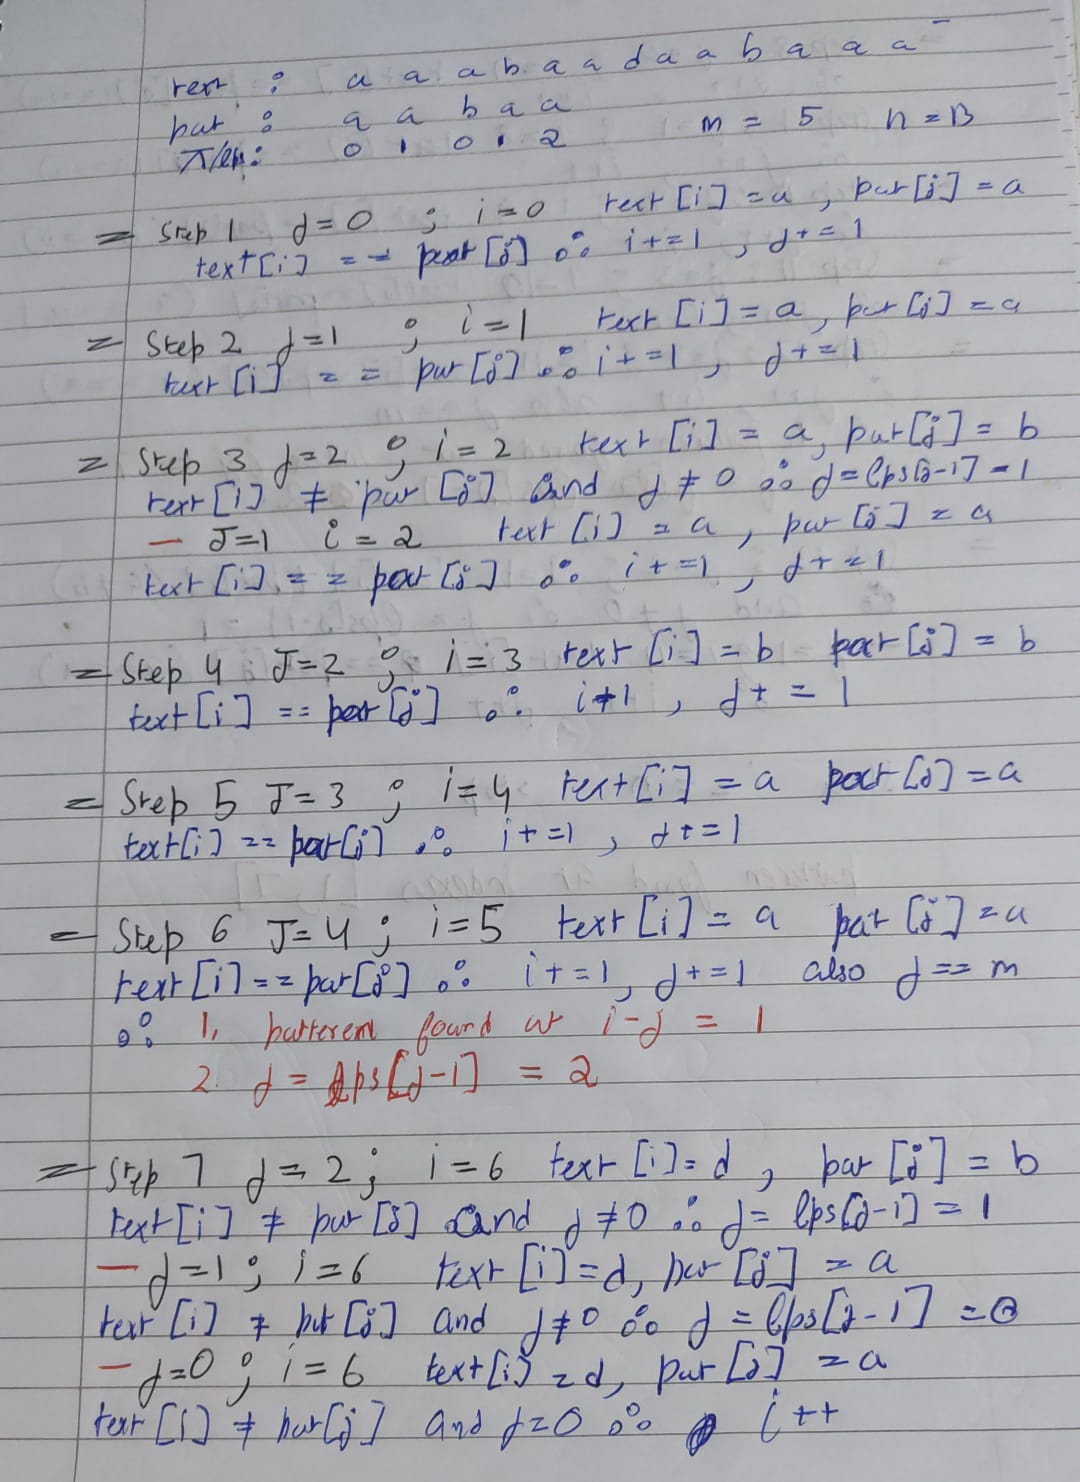 text : a a a b a a d a a b a a a
pat : a a b a a
π/lps: 0 1 0 1 2 m = 5 n = 13
= Step 1 j=0 ; i=0 text [i] = a , pat [j] = a
text [i] == pat [j] ∴ i+=1 , j+=1
= Step 2 j=1 ; i=1 text [i] = a , pat [j] = a
text [i] == pat [j] ∴ i+=1 , j+=1
= Step 3 j=2 ; i=2 text [i] = a, pat[j] = b
text [i] ≠ pat [j] and j≠0 ∴ j=lps[j-1]=1
- J=1 i=2 text [i] = a , pat [j] = a
text [i] == pat [j] ∴ i+=1 , j+=1
= Step 4 J=2 ; i=3 text [i] = b pat [j] = b
text [i] == pat [j] ∴ i+1 , j+=1
= Step 5 J=3 ; i=4 text [i] = a pat [j] = a
text[i] == pat[j] ∴ i+=1 , j+=1
= Step 6 J=4 ; i=5 text [i] = a pat [j] = a
text [i] == pat[j] ∴ i+=1, j+=1 also j==m
∴ 1. patteren found at i-j = 1
2. j = lps[j-1] = 2
= Step 7 j=2 ; i=6 text [i]=d , pat [j] = b
text [i] ≠ pat [j] and j≠0 ∴ j= lps[j-1] = 1
- j=1 ; i=6 text [i]=d, pat [j] = a
text [i] ≠ pat [j] and j≠0 ∴ j = lps[j-1] = 0
- j=0 ; i=6 text[i] = d, pat [j] = a
text [i] ≠ pat[j] and j=0 ∴ i++